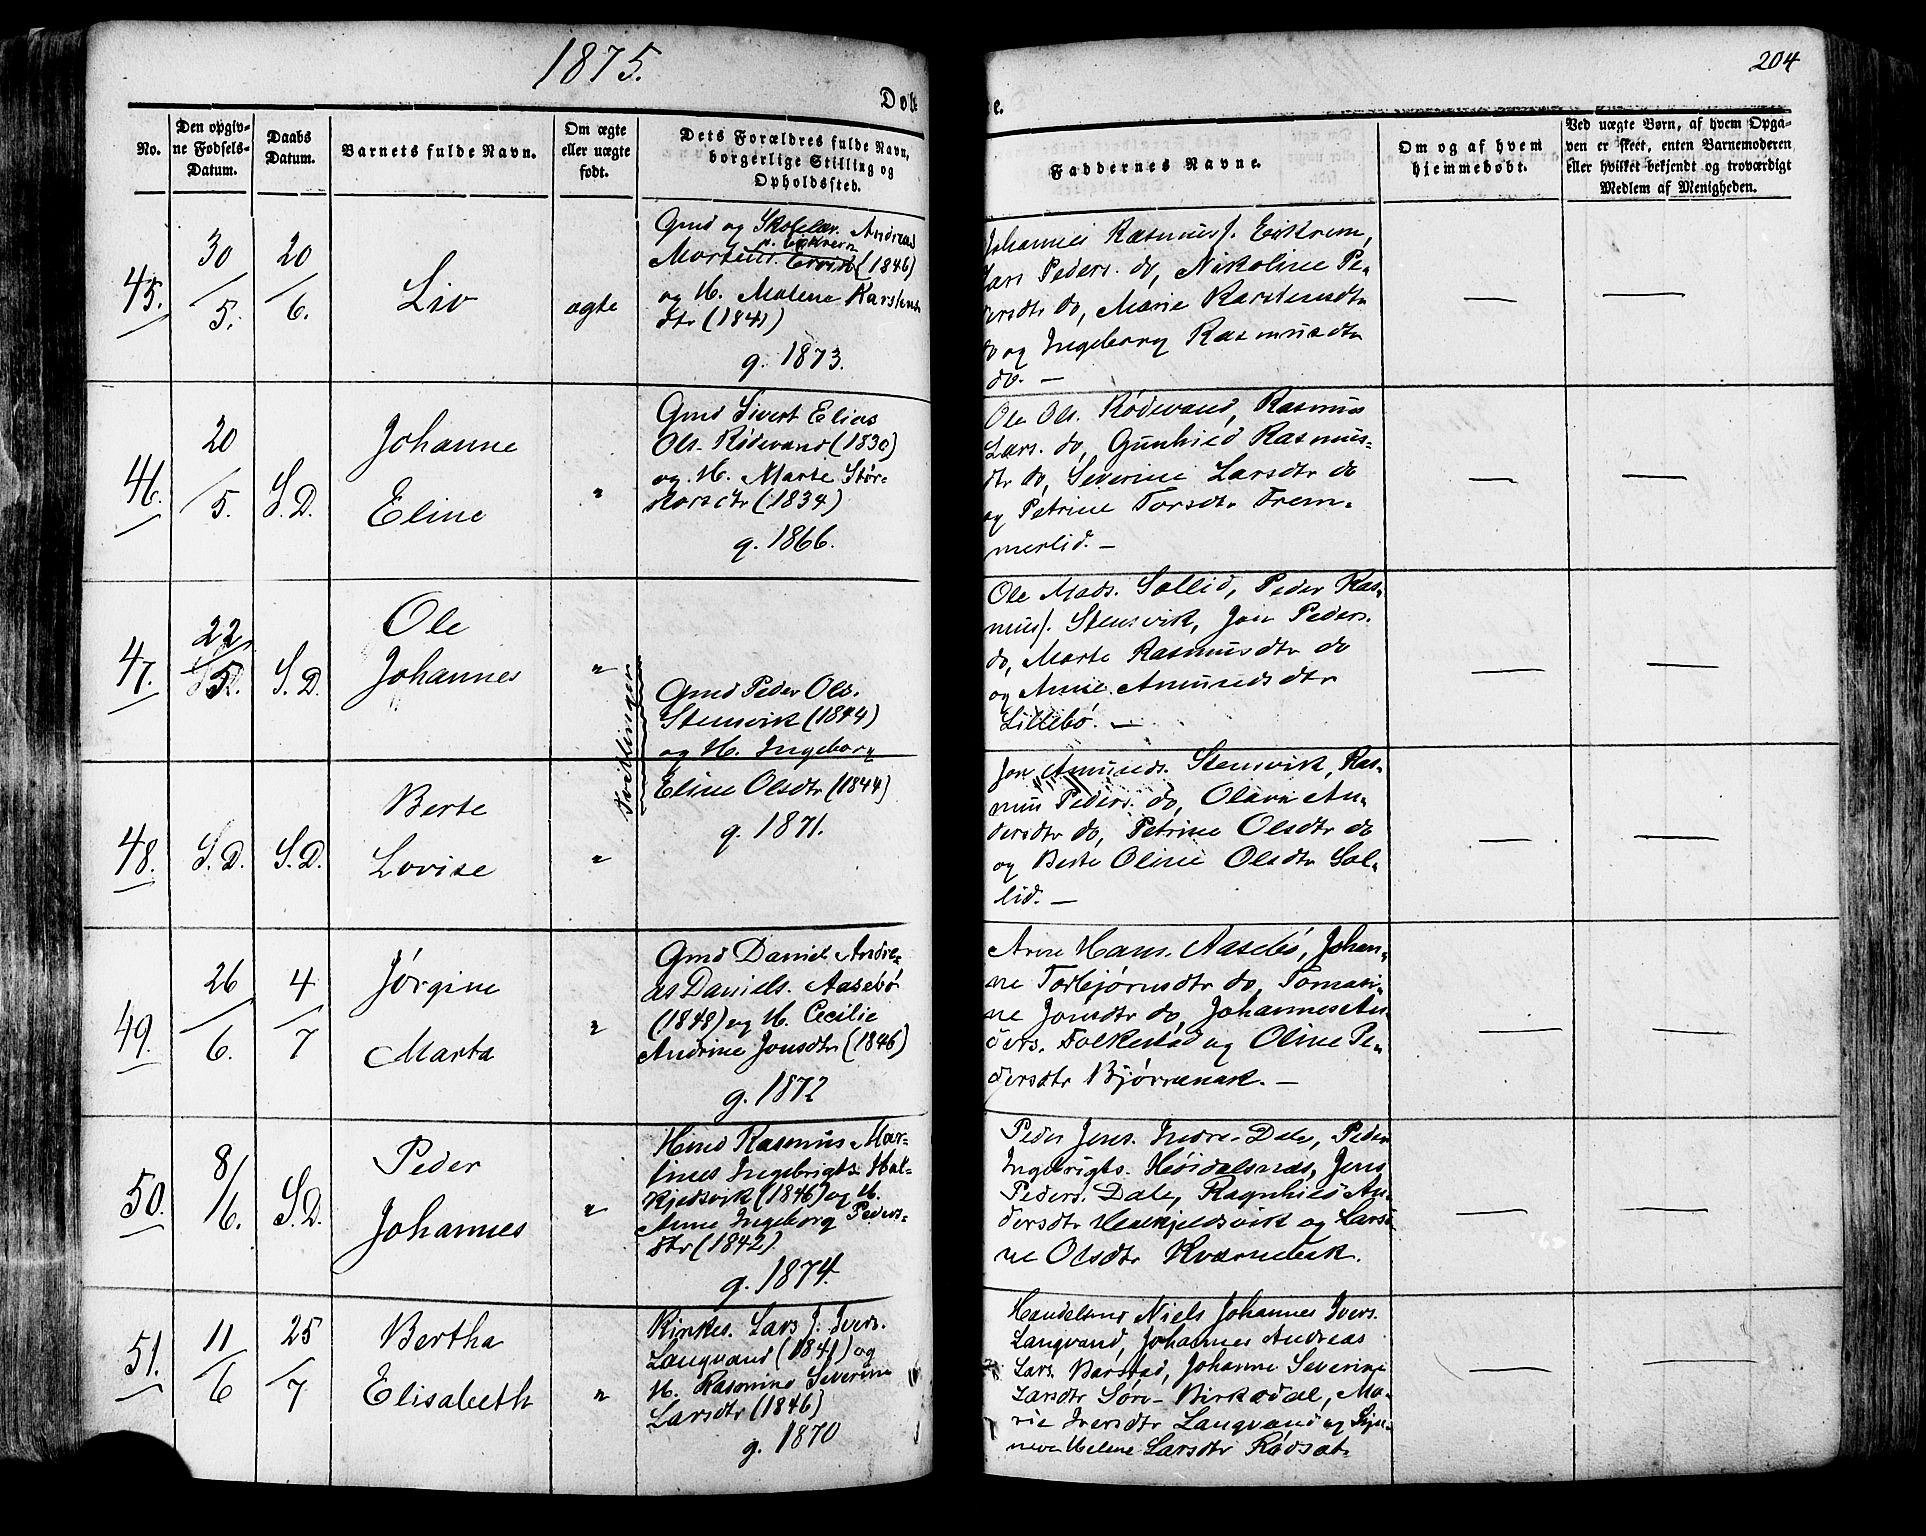 1875.
204
Døbte.
No.
Den opgiv-
ne Fødsels-
Datum.
Daabs
Datum.
Barnets fulde Navn.
Om ægte
eller uægte
født.
Dets Forældres fulde Navn,
borgerlige Stilling og
Opholdssted.
Faddernes Navne.
Om og af hvem
hjemmedøbt.
Ved uægte Børn, af hvem Opga-
ven er skeet, enten Barnemoderen
eller hvilket bekjendt og troværdigt
Medlem af Menigheden.
45.
30
/
5.
20
/
6.
Liv
ægte
Gmd og Skolelær. Andreas
Mortens. Eikrem (1846)
og H. Malene Karstens
dtr (1841)
g. 1873.
Johannes Rasmuss. Eikrem,
Lars Peders. do, Nikoline Pe-
dersdtr do, Marie Karstensdtr
do og Ingeborg Rasmusdtr
do. —
—
—
46.
20
/
5.
S. D.
Johanne
Eline
"
Gmd Sivert Elias
Ols. Rødevand (1830)
og H. Marte Stør-
korsdtr (1834)
g. 1866.
Ole Ols. Rødevand, Rasmus
Lars. do, Gunhild Rasmus-
dtr do, Severine Larsdtr do
og Petrine Torsdtr Frem-
merlid. —
—
—
47.
22
/
5.
S. D.
Ole
Johannes
"
Tvillinger
Gmd Peder Ols.
Stensvik (1844)
og H. Ingeborg
Eline Olsdtr (1844)
g. 1871.
Ole Mads. Sollid, Peder Ras-
muss. Stensvik, Jon Peders.
do, Marte Rasmusdtr do
og Anne Amundsdtr
Lillebø. —
—
—
48.
S. D.
S. D.
Berte
Lovise
"
Jon Amunds. Stensvik, Ras-
mus Peders. do, Olave An-
dersdtr do, Petrine Olsdtr do
og Berte Oline Olsdtr Sol-
lid. —
—
—
49.
26
/
6.
4
/
7
Jørgine
Marta
"
Gmd Daniel Andre-
as Daniels. Aasebø
(1848) og H. Cecilie
Andrine Jonsdtr (1846)
g. 1872
Arne Hans. Aasebø, Johan-
ne Torbjørnsdtr do, Tomasi-
ne Jonsdtr do, Johannes An-
ders. Folkestad og Oline Pe-
dersdtr Bjørnenak. —
—
—
50.
8
/
6.
S. D.
Peder
Johannes
"
Hmd Rasmus Mar-
tinus Ingebrigts. Hal-
kjedsvik (1846) og H.
Anne Ingeborg Peders-
dtr (1842)
g. 1874.
Peder Jens. Indre-Dale, Peder
Ingebrigts. Høidalsnæs, Jens
Peders. Dale, Ragnhild An-
dersdtr Halkjeldsvik og Larsi-
ne Olsdtr Kvarnebæk.
—
—
51.
11
/
6
25
/
7
Bertha
Elisabeth
"
Kirkes. Lars J. Ivers.
Langvand (1841) og
H. Rasmine Severine
Larsdtr (1846)
g. 1870
Handelsmd Niels Johannes Ivers.
Langvand, Johannes Andreas
Lars. Barstad, Johanne Severine
Larsdtr Søre-Birkedal, Ma-
rie Iversdtr Langvand og Syn-
neve Helene Larsdtr Rødsæt
—
—